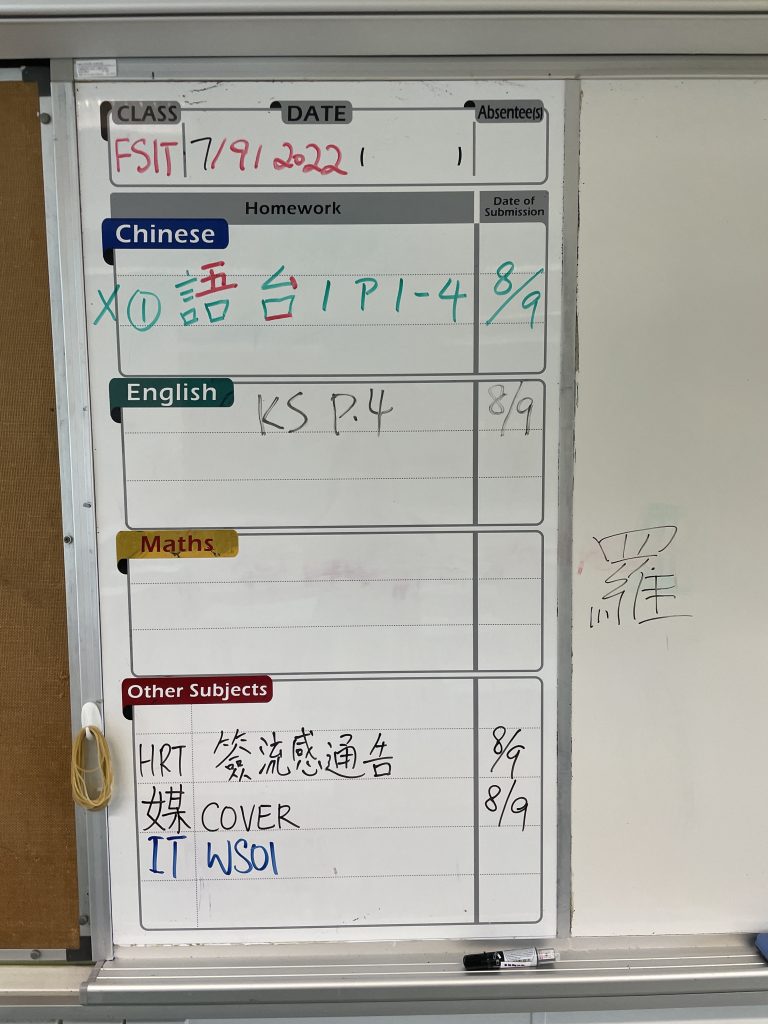 CLASS DATE Absentee(s)
FSIT 7/9/2022 ( )
Homework Date of Submission
Chinese
X ① 語 台 1 P 1-4 8/9
English
KS P.4 8/9
Maths
羅
Other Subjects
HRT 簽流感通告 8/9
媒 COVER 8/9
IT WS01